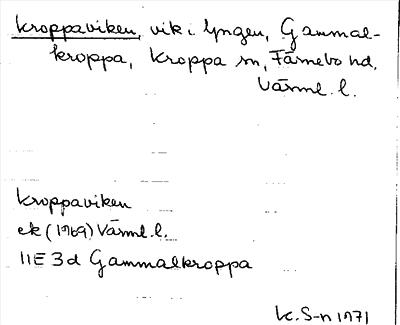 Kroppaviken, vik i Yngen, Gammal-
kroppa, Kroppa sn, Färnebo hd,
Värml. l.
Kroppaviken
ek (1969) Värml. l.
11E 3d Gammalkroppa
K. S-n 1971